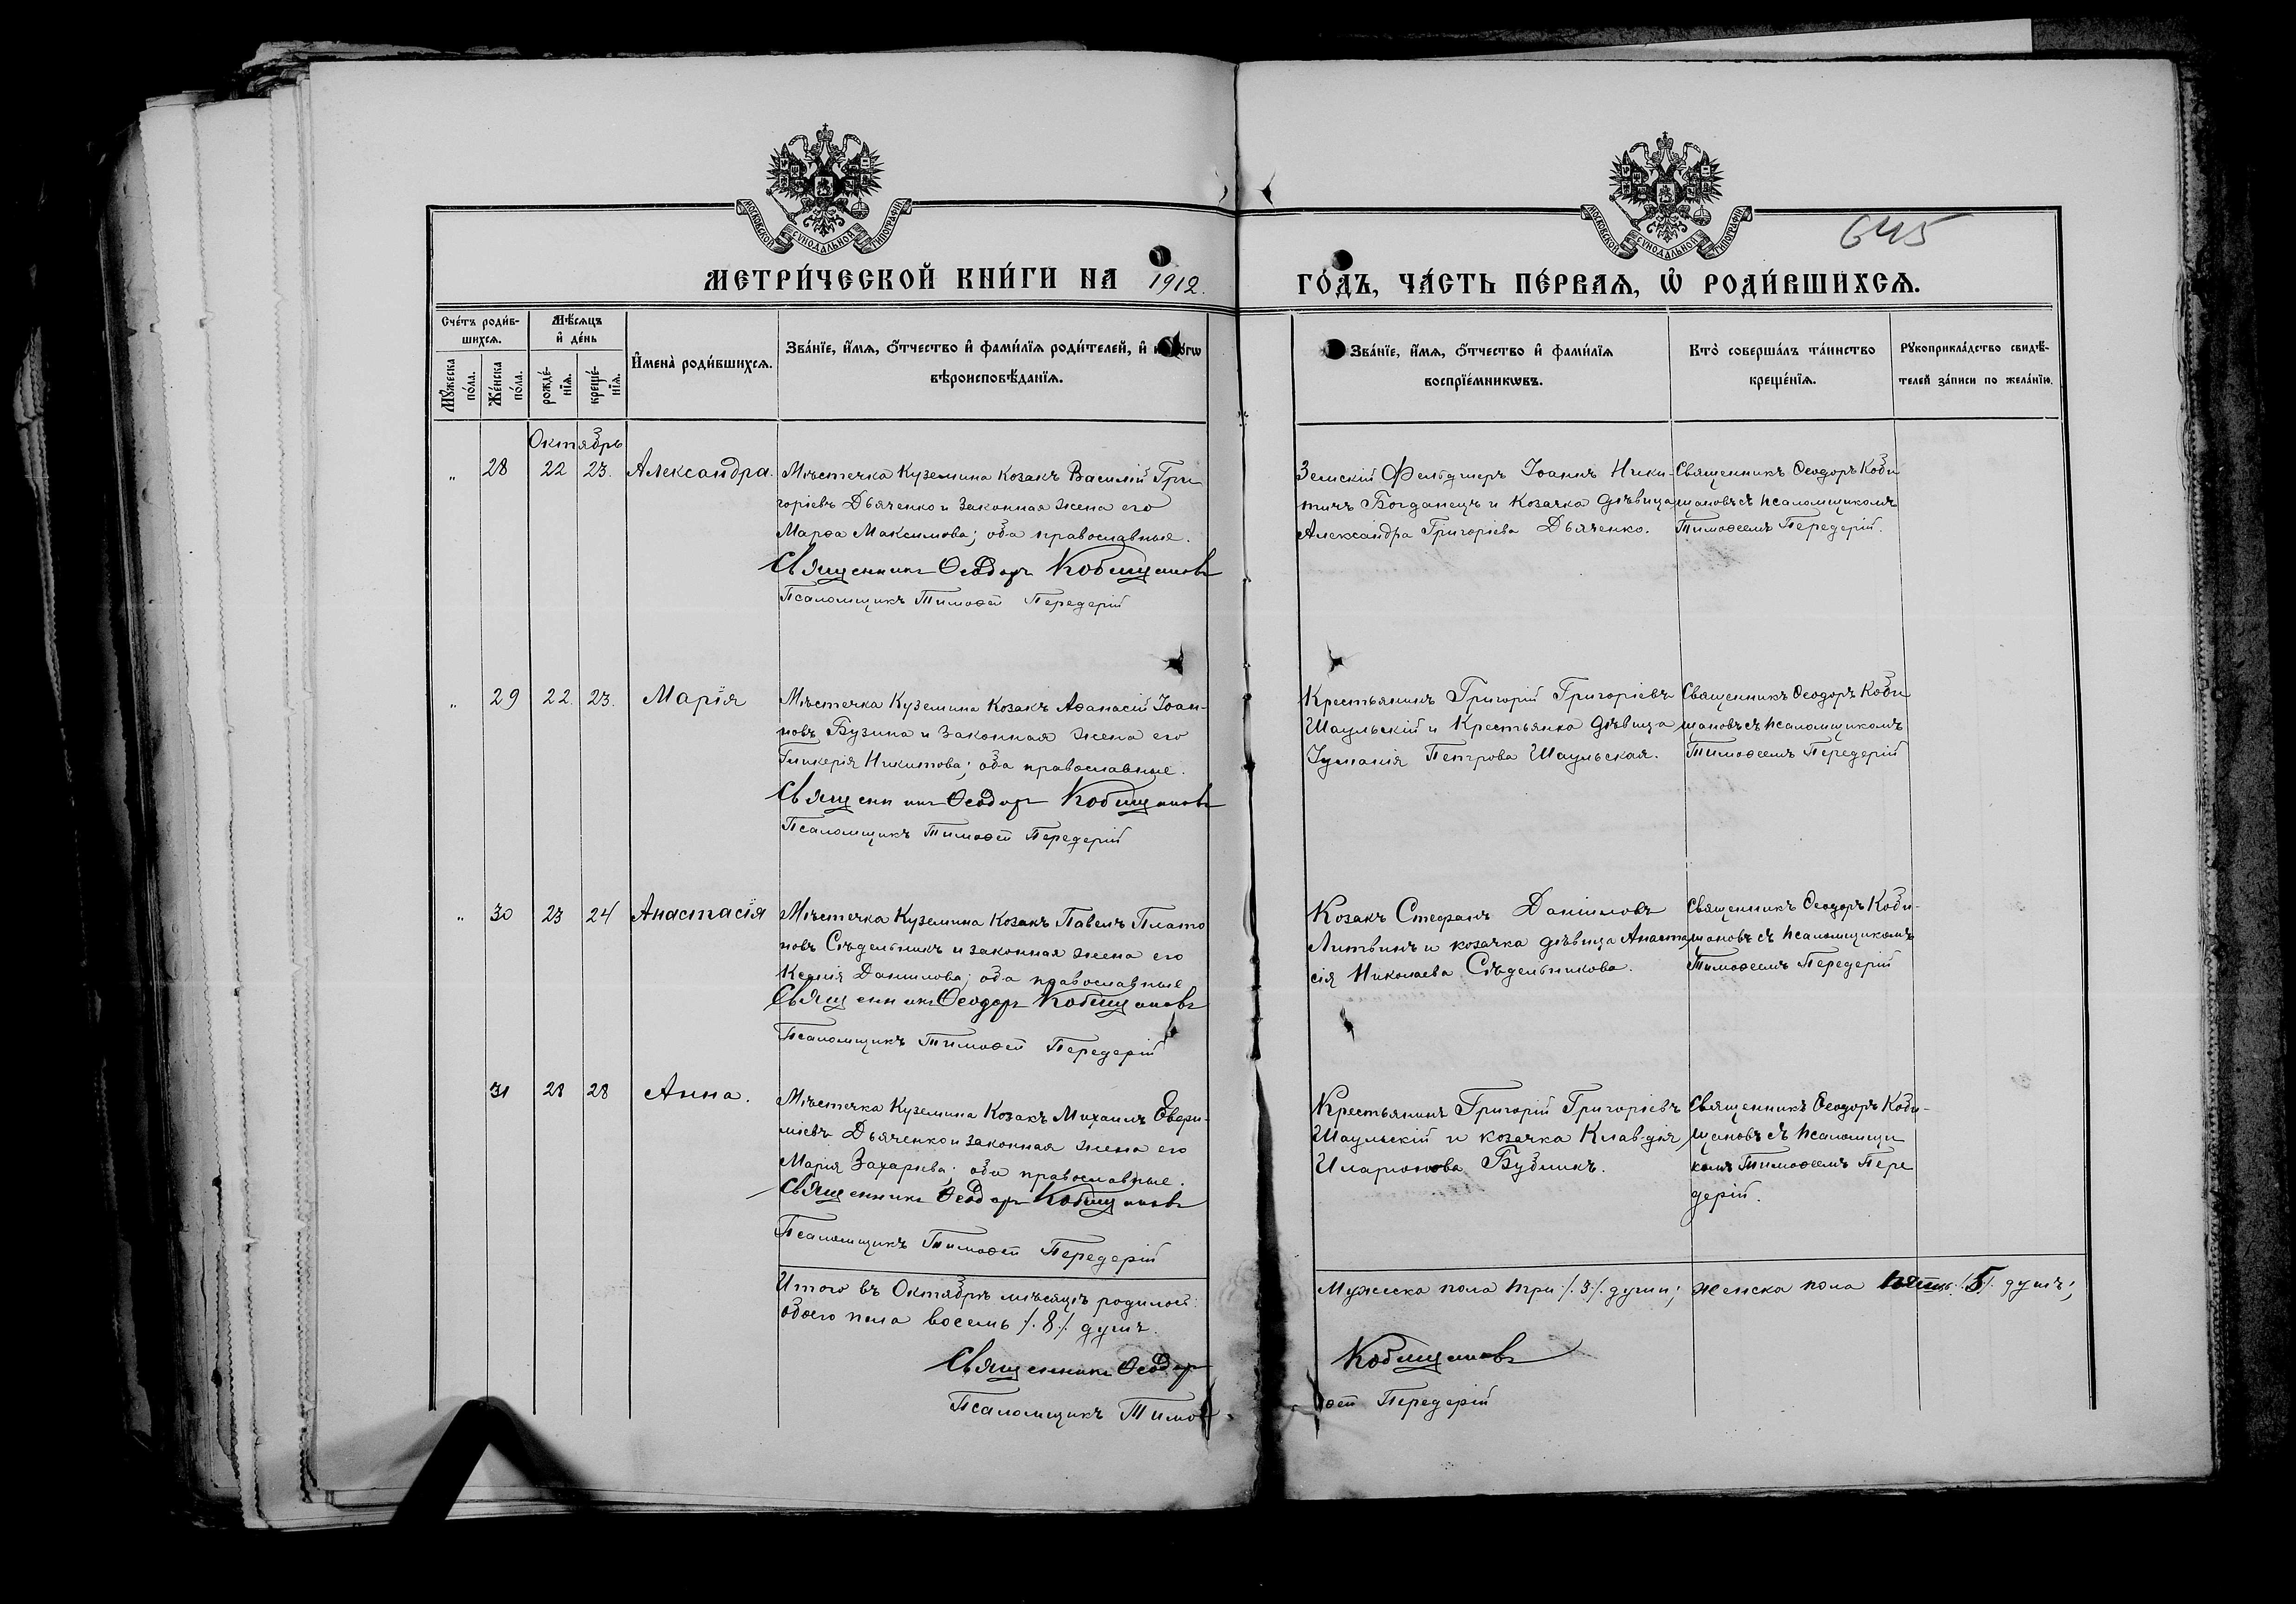 МОСКОВСКОЙ СѴНОДАЛЬНОЙ ТИПОГРАФІИ
МОСКОВСКОЙ СѴНОДАЛЬНОЙ ТИПОГРАФІИ
645
МЕТРИ́ЧЕСКОЙ КНИ́ГИ НА 1912. ГО́ДЪ, ЧА́СТЬ ПЕ́РВАѦ, Ѡ҆ РОДИ́ВШИХСѦ.
Сче́тъ роди́в-
шихсѧ.
Мꙋ́жеска по́ла.
Же́нска по́ла.
Мѣ́сѧцъ
и҆ де́нь
рожде́-
нїѧ.
креще́-
нїѧ.
И҆мена̀ роди́вшихсѧ.
Зва́нїе, и҆́мѧ, ѻ҆́тчество и҆ фами́лїѧ роди́телей, и҆
вѣроисповѣ́данїѧ.
Зва́нїе, и҆́мѧ, ѻ҆́тчество и҆ фами́лїѧ
воспрїе́мникѡвъ.
Кто̀ соверша́лъ та́инство
креще́нїѧ.
Рꙋкоприкла́дство свидѣ́-
телей за́писи по жела́нїю.
Октябрь
„ 28 22 23. Александра.
Мѣстечка Куземина Козакъ Василій Гри-
горіевъ Дьяченко и законная жена его
Марѳа Максимова; оба православные.
Священникъ Ѳеодоръ Кобищановъ
Псаломщикъ Тимоѳей Передерій
Земскій Фельдшеръ Іоаннъ Ники-
тичъ Богданецъ и Козачка дѣвица
Александра Григоріева Дьяченко.
Священникъ Ѳеодоръ Коби
щановъ съ псаломщикомъ
Тимоѳеемъ Передерій.
„ 29 22. 23. Марія
Мѣстечка Куземина Козакъ Аѳанасій Іоан-
новъ Бузина и законная жена его
Гликерія Никитова; оба православные.
Священникъ Ѳеодоръ Кобищановъ
Псаломщикъ Тимоѳей Передерій
Крестьянинъ Григорій Григоріевъ
Шаульскій и Крестьянка дѣвица
Іуліанія Петрова Шаульская.
Священникъ Ѳеодоръ Коби
щановъ съ псаломщикомъ
Тимоѳеемъ Передерій
„ 30 23 24 Анастасія
Мѣстечка Куземина Козакъ Павелъ Плато
новъ Сѣдельникъ и законная жена его
Ксенія Данилова; оба православные
Священникъ Ѳеодоръ Кобищановъ
Псаломщикъ Тимоѳей Передерій
Козакъ Стефанъ Даніиловъ
Литвинъ и козачка дѣвица Анаста
сія Николаева Сѣдельникова.
Священникъ Ѳеодоръ Коби-
щановъ съ псаломщикомъ
Тимоѳеемъ Передерій
31 28 28 Анна.
Мѣстечка Куземина Козакъ Михаилъ Евѳи-
міевъ Дьяченко и законная жена его
Марія Захаріева; оба православные.
Священникъ Ѳеодоръ Кобищановъ
Псаломщикъ Тимоѳей Передерій
Крестьянинъ Григорій Григоріевъ
Шаульскій и козачка Клавдія
Иларіонова Будникъ.
Священникъ Ѳеодоръ Коби-
щановъ съ псаломщи
комъ Тимоѳеемъ Пере
дерій.
Итого въ Октябрѣ мѣсяцѣ родилось:
обоего пола восемь /.8./ душъ.
Мужеска пола три /.3./. души; женска пола пять /.5/. душъ;
Священникъ Ѳеодоръ Кобищановъ
Псаломщикъ Тимоѳей Передерій